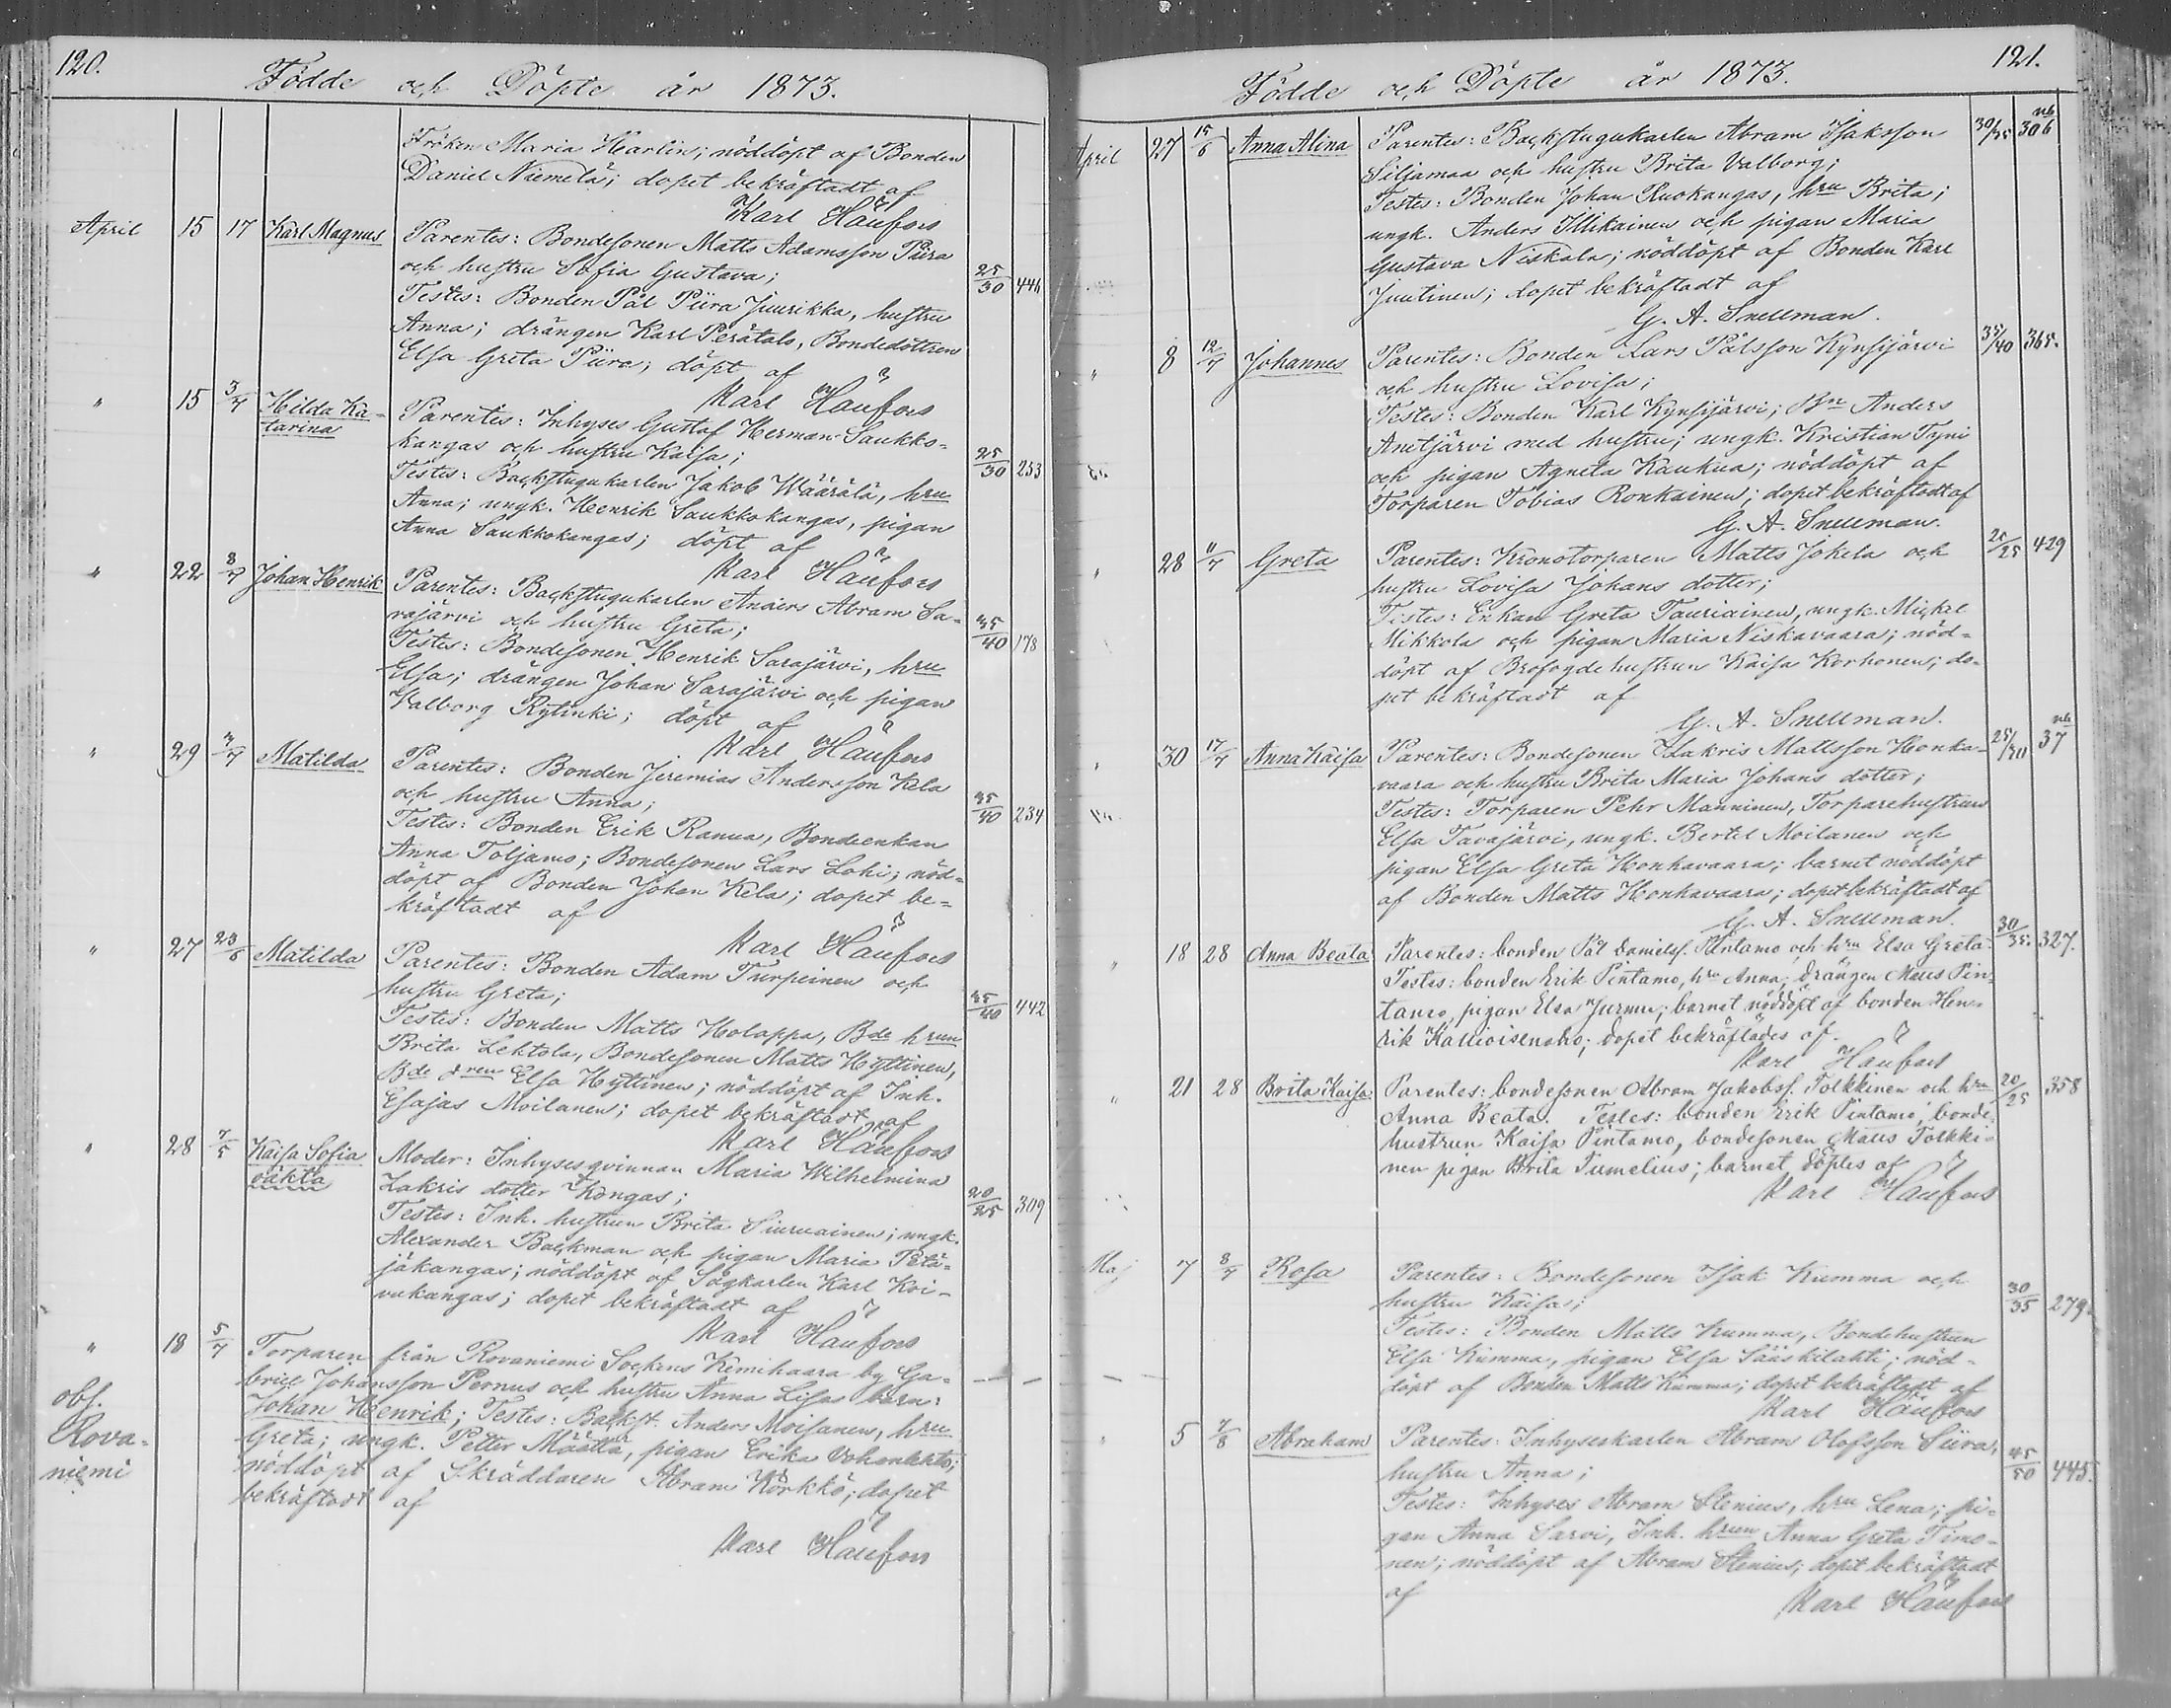 120.
Födde och Döpte år 1873.
Fröken Maria Harlin; nöddöpt af Bonden
Daniel Niemelä; dopet bekräftadt af
Karl Häufors
April 15 17 Karl Magnus Parentes: Bondesonen Matts Adamsson Piira
och hustru Sofia Gustava; 25/30 446
Testes: Bonden Pål Piira Juurikka, hustru
Anna; drängen Karl Perätalo, Bondedottren
Elsa Greta Piira; döpt af
Karl Häufors
" 15 3/7 Hilda Ka-
tarina Parentes: Inhyses Gustaf Herman Saukko-
kangas och hustru Kaisa; 25/30 253
Testes: Backstugukarlen Jakob Wäärälä, hru
Anna; ungk. Henrik Saukkokangas, pigan
Anna Saukkokangas; döpt af
Karl Häufors
" 22 8/7 Johan Henrik Parentes: Backstugukarlen Anders Abram Sa-
rajärvi och hustru Greta; 35/40 178
Testes: Bondesonen Henrik Sarajärvi, hru
Elsa; drängen Johan Sarajärvi och pigan
Valborg Rytinki; döpt af
Karl Häufors
" 29 3/7 Matilda Parentes: Bonden Jeremias Andersson Kela
och hustru Anna; 35/40 234
Testes: Bonden Erik Ranua, Bondeenkan
Anna Toljamo; Bondesonen Lars Lohi; nöd-
döpt af Bonden Johan Kela; dopet be-
kräftadt af
Karl Häufors
" 27 23/6 Matilda Parentes: Bonden Adam Turpeinen och
hustru Greta; 35/40 442
Testes: Bonden Matts Holappa, Bde hrun
Brita Lehtola, Bondesonen Matts Hyttinen,
Bde dren Elsa Hyttinen; nöddöpt af Inh.
Esajas Moilanen; dopet bekräftadt af
Karl Häufors
" 28 7/5 Kaisa Sofia
oäkta Moder: Inhysesqvinnan Maria Wilhelmina
Zakris dotter Kongas; 20/25 309
Testes: Inh. hustrun Brita Siuruainen; ungk.
Alexander Backman och pigan Maria Petä-
jäkangas; nöddöpt af Sågkarlen Karl Koi-
vukangas; dopet bekräftadt af
Karl Häufors
" 18 5/7 Torparen från Rovaniemi Sockens Kemihaara by Ga-
briel Johansson Pernus och hustru Anna Lisas barn:
obs. Johan Henrik; Testes: Backst. Anders Moisanen, hru
Rova- Greta; ungk. Petter Määttä, pigan Erika
niemi nöddöpt af Skräddaren Abram Körkkö; dopet
bekräftadt af
Karl Häufors
121.
Födde och Döpte år 1873.
April 27 15/6 Anna Alina Parentes: Backstugukarlen Abram Isaksson 30/35 nb 306
Siljamaa och hustru Brita Valborg;
Testes: Bonden Johan Ruokangas, hru Brita;
ungk. Anders Illikainen och pigan Maria
Gustava Niskala; nöddöpt af Bonden Karl
Juutinen; dopet bekräftadt af
G. A. Snellman.
" 8 12/7 Johannes Parentes: Bonden Lars Pålsson Kynsijärvi 35/40 365.
och hustru Lovisa;
Testes: Bonden Karl Kynsijärvi; Bn Anders
Anetjärvi med hustru; ungk. Kristian Tyni
och pigan Agneta Kaukua; nöddöpt af
Torparen Tobias Ronkainen; dopet bekräftadt af
G. A. Snellman.
" 28 11/7 Greta Parentes: Kronotorparen Matts Jokela och 20/25 429
hustru Lovisa Johans dotter;
Testes: Enkan Greta Tauriainen, ungk. Mickel
Mikkola och pigan Maria Niskavaara; nöd-
döpt af Brofogdehustrun Kaisa Korhonen; do-
pet bekräftadt af
G. A. Snellman.
" 30 17/7 Anna Kaisa Parentes: Bondesonen Zakris Mattsson Honka- 25/30 nb 37
vaara och hustru Brita Maria Johans dotter;
Testes: Torparen Pehr Manninen, Torparehustrun
Elsa Tavajärvi, ungk. Bertel Moilanen och
pigan Elsa Greta Honkavaara; barnet nöddöpt
af Bonden Matts Honkavaara; dopet bekräftadt af
G. A. Snellman.
" 18 28 Anna Beata Parentes: bonden Pål Danielss. Pintamo och hru Elsa Greta. 30/35. 327.
Testes: bonden Erik Pintamo, hru Anna; drängen Maus Pin-
tamo, pigan Elsa Jurmu; barnet nöddöpt af bonden Hen-
rik Kallioisenaho; dopet bekräftades af
Karl Häufors
" 21 28 Brita Kaisa Parentes: bondesonen Abram Jakobss. Tolkkinen och hru 20/25 358
Anna Beata. Testes: bonden Erik Pintamo, bonde-
hustrun Kaisa Pintamo, bondesonen Maus Tolkki-
nen pigan Brita Tumelius; barnet döptes af
Karl Häufors
Maj 7 8/7 Rosa Parentes: Bondesonen Isak Kumma och
hustru Kaisa; 30/35 279.
Testes: Bonden Matts Kumma, Bondehustrun
Elsa Kumma, pigan Elsa Sääskilahti; nöd-
döpt af Bonden Matts Kumma; dopet bekräftadt af
Karl Häufors
" 5 7/8 Abraham Parentes: Inhyseskarlen Abram Olofsson Siira,
hustru Anna; 45/50 445.
Testes: Inhyses Abram Stenius, hru Lena; pi-
gan Anna Sarvi, Inh. hrun Anna Greta Timo-
nen; nöddöpt af Abram Stenius; dopet bekräftadt
af
Karl Häufors